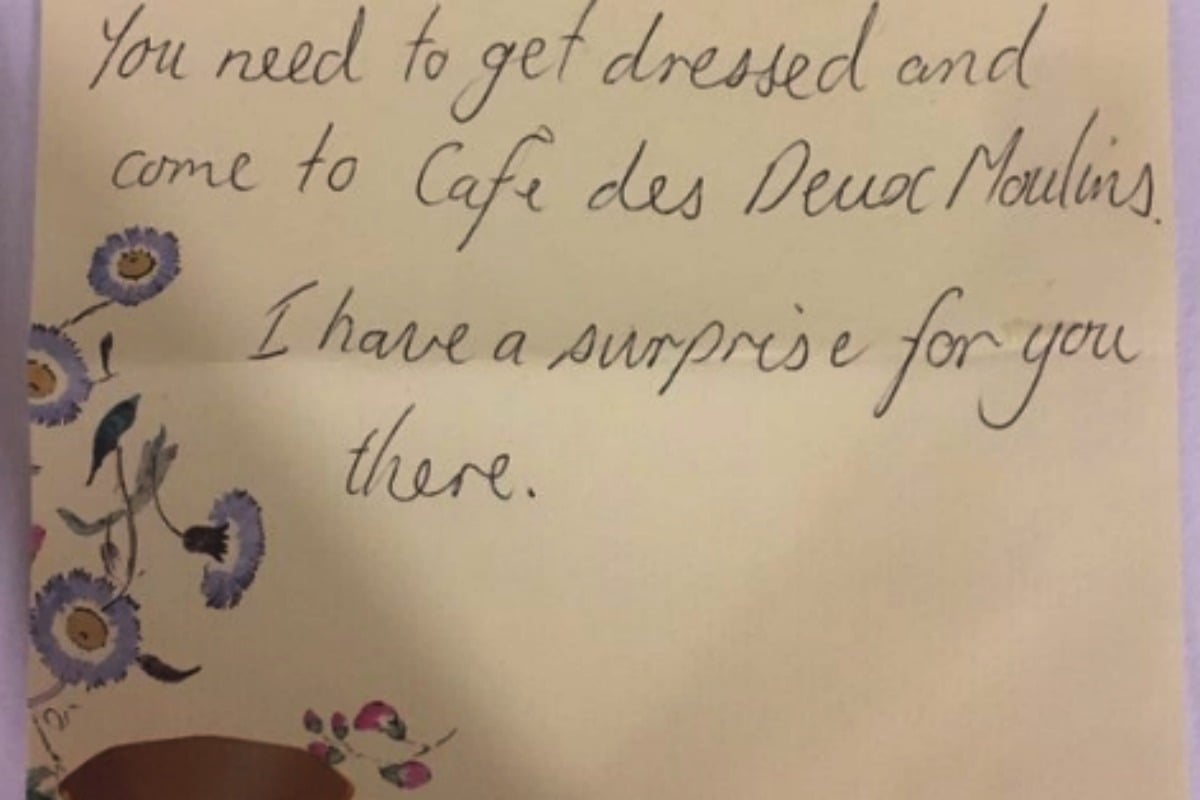 You need to get dressed and
come to Cafê des Deux Moulins.
I have a surprise for you
there.